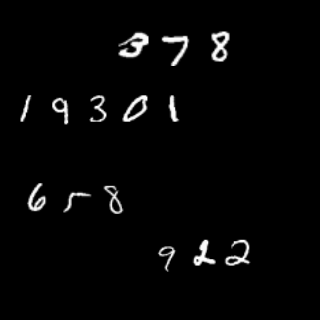 378
19301
658
922